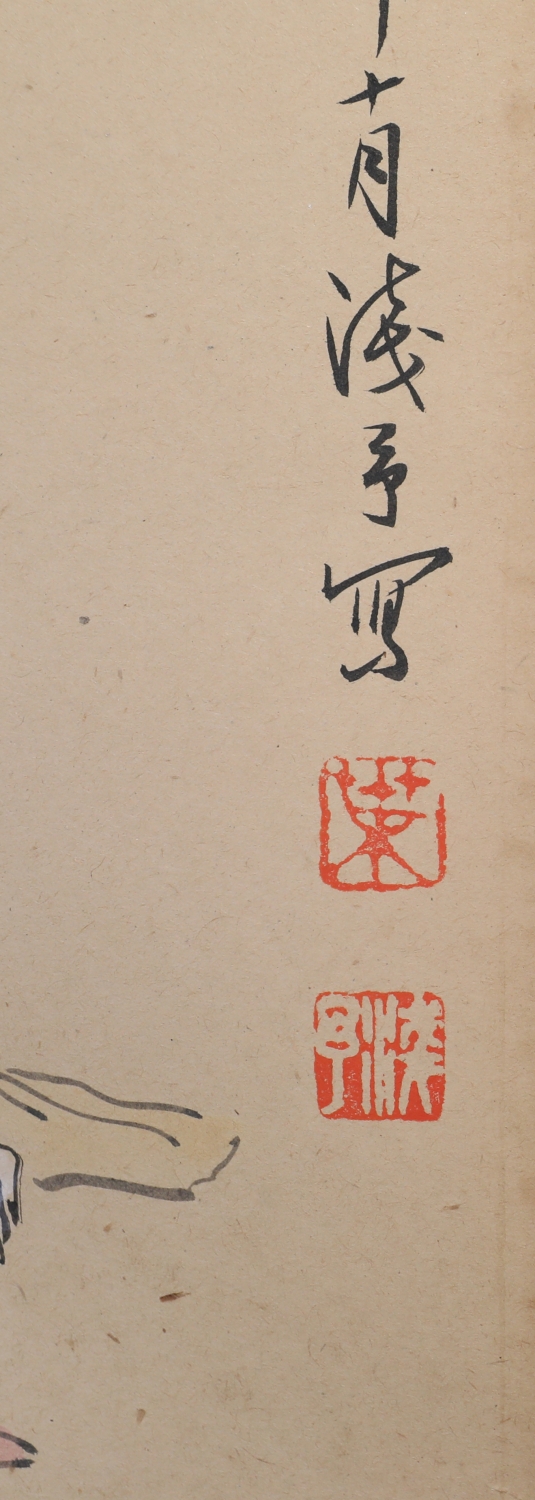 十月淺予寫
葉
淺予